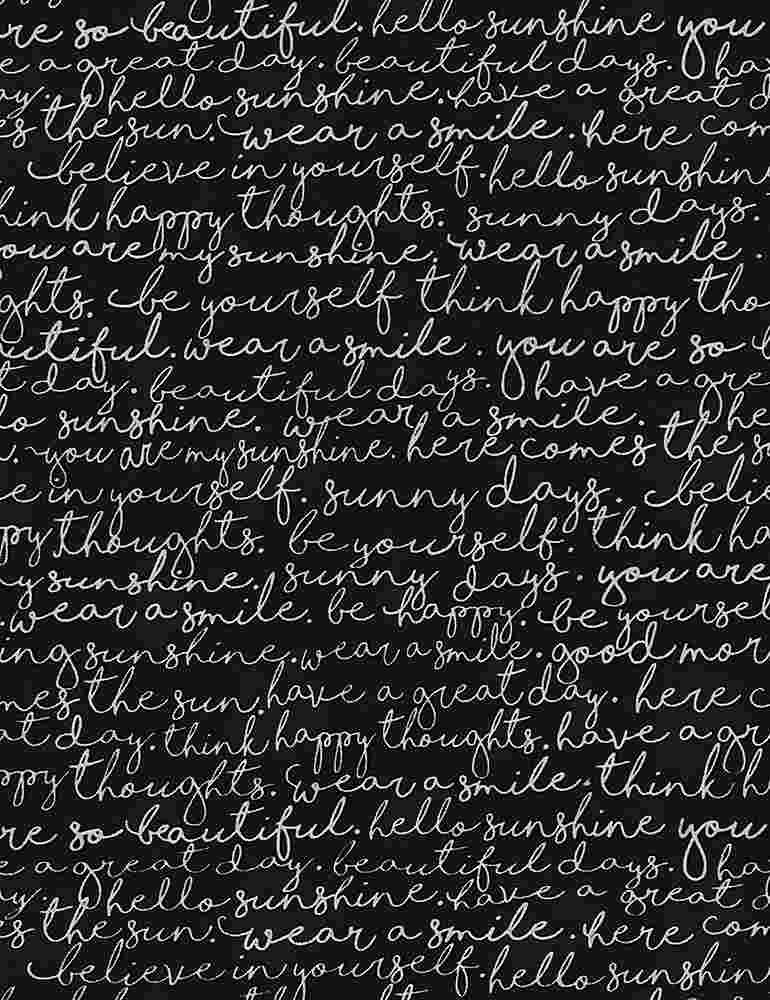 re so beautiful. hello sunshine you
e a great day. beautiful days. hav
ay. hello sunshine. have a great d
es the sun. wear a smile. here com
believe in yourself. hello sunshin
hink happy thoughts. sunny days.
ou are my sunshine. wear a smile.
ghts. be yourself think happy tho
utiful. wear a smile. you are so b
t day. beautiful days. have a gre
lo sunshine. wear a smile. he
. you are my sunshine. here comes the s
e in yourself. sunny days. belie
py thoughts. be yourself. think ha
y sunshine. sunny days. you are
. wear a smile. be happy. be yoursel
ing sunshine. wear a smile. good mor
mes the sun. have a great day. here c
at day. think happy thoughts. have a gr
ppy thoughts. wear a smile. think h
re so beautiful. hello sunshine you
e a great day. beautiful days. ha
ay. hello sunshine. have a great d
es the sun. wear a smile. here com
believe in yourself. hello sunshin